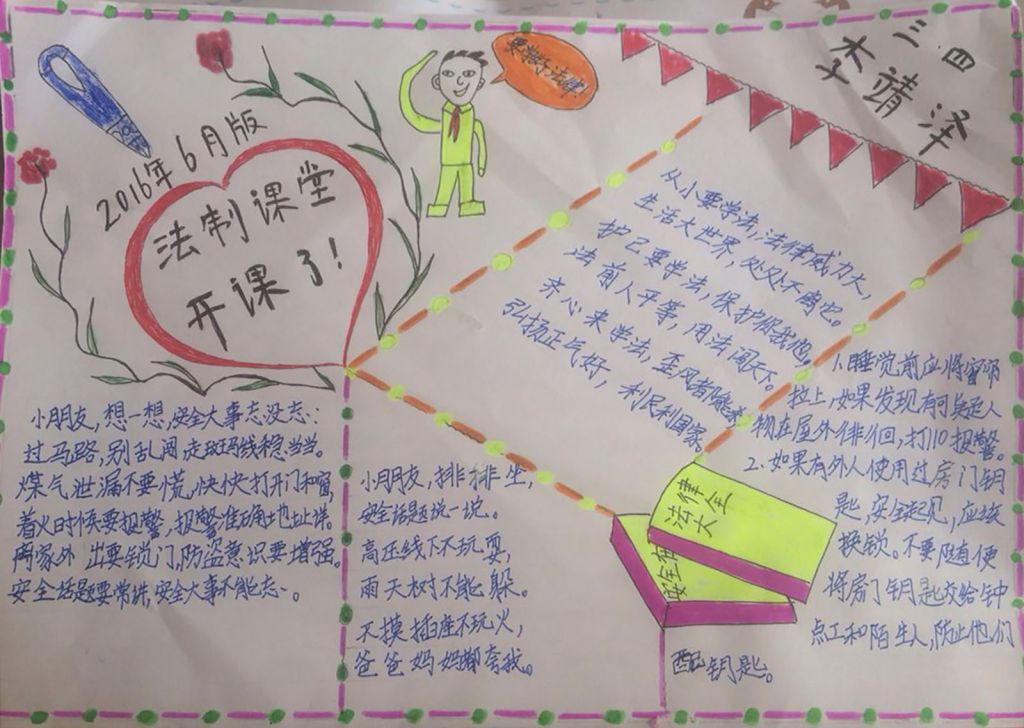 三.四
李靖泽
要学好法律
2016年6月版
法制课堂
开课了!
从小要学法,法律威力大,
生活大世界,处处不离它。
护己要学法,保护你我他。
法前人平等,用法闯天下。
齐心来学法,歪风者除杀
弘扬正气好,利民利国家。
小朋友,想一想,安全大事忘没忘:
过马路,别乱闯走斑马线稳当当。
煤气泄漏不要慌,快快打开门和窗,
着火时候要报警,报警准确地址详。
离家外出要锁门,防盗意识要增强。
安全话题要常讲,安全大事不能忘。
小朋友,排排坐,
安全话题说一说。
高压线下不玩耍,
雨天树下不能躲。
不摸插座不玩火,
爸爸妈妈都夸我。
法律大全
安全
1.睡觉前应将窗帘
拉上,如果发现有可疑人
物在屋外徘徊,打110报警。
2.如果有外人使用过房门钥
匙,安全起见,应该
换锁。不要随便
将房门钥匙交给钟
点工和陌生人,防止他们
配钥匙。